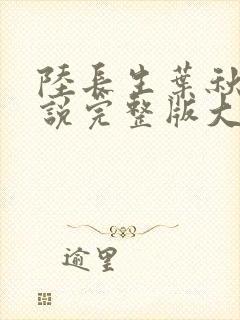 陸長生葉秋
說完整版大
逾里